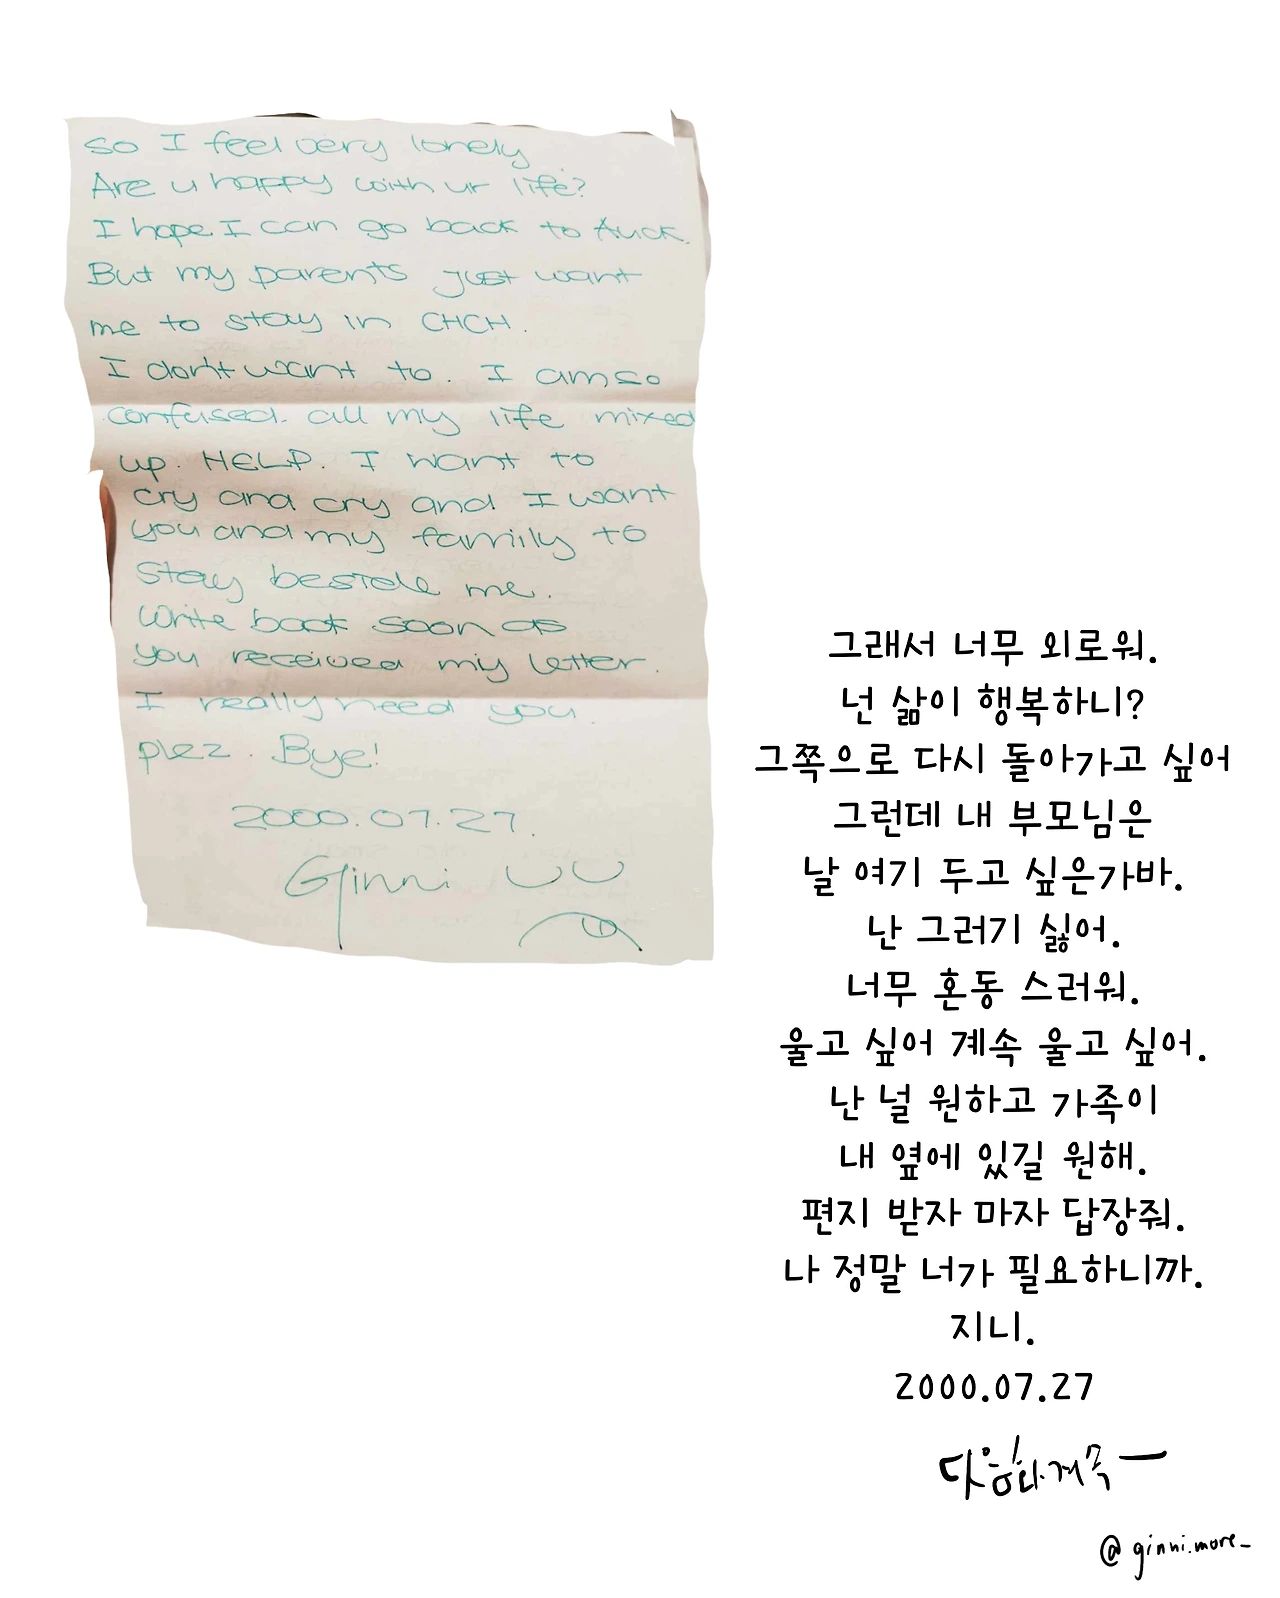 so I feel very lonely
Are u happy with ur life?
I hope I can go back to Auck.
But my parents just want
me to stay in CHCH.
I don't want to. I am so
confused. all my life mixed
up. HELP. I want to
cry and cry and I want
you and my family to
stay beside me.
Write back soon as
you received my letter.
I really need you.
plez. Bye!
2000.07.27.
Ginni
그래서 너무 외로워.
넌 삶이 행복하니?
그쪽으로 다시 돌아가고 싶어
그런데 내 부모님은
날 여기 두고 싶은가바.
난 그러기 싫어.
너무 혼동 스러워.
울고 싶어 계속 울고 싶어.
난 널 원하고 가족이
내 옆에 있길 원해.
편지 받자 마자 답장줘.
나 정말 너가 필요하니까.
지니.
2000.07.27
다음화 계속ㅡ
@ginni.more_